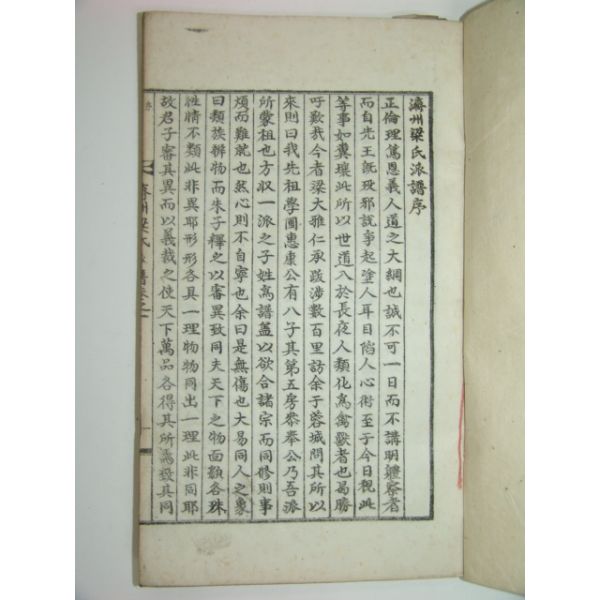 濟州梁氏派譜序
正倫理篤恩義人道之大綱也誠不可一日而不講明體察者
而自先王旣歿邪說爭起塗人耳目陷人心術至于今日視此
等事如糞壤此所以世道入於長夜人類化爲禽獸者也曷勝
吁歎我今者梁大雅仁承跋涉數百里訪余于蓉城問其所以
來則曰我先祖學圃惠康公有八子其第五房參奉公乃吾派
所蒙祖也方収一派之子姓爲譜盖以欲合諸宗而同修則事
煩而難就也然心則不自寧也余曰是無傷也大易同人之象
曰類族辨物而朱子釋之以審異致同夫天下之物面類各殊
性情不類此非異耶形形各具一理物物同出一理此非同耶
故君子審其異而以義裁之使天下萬品各得其所焉致其同
濟州梁氏派譜卷之一